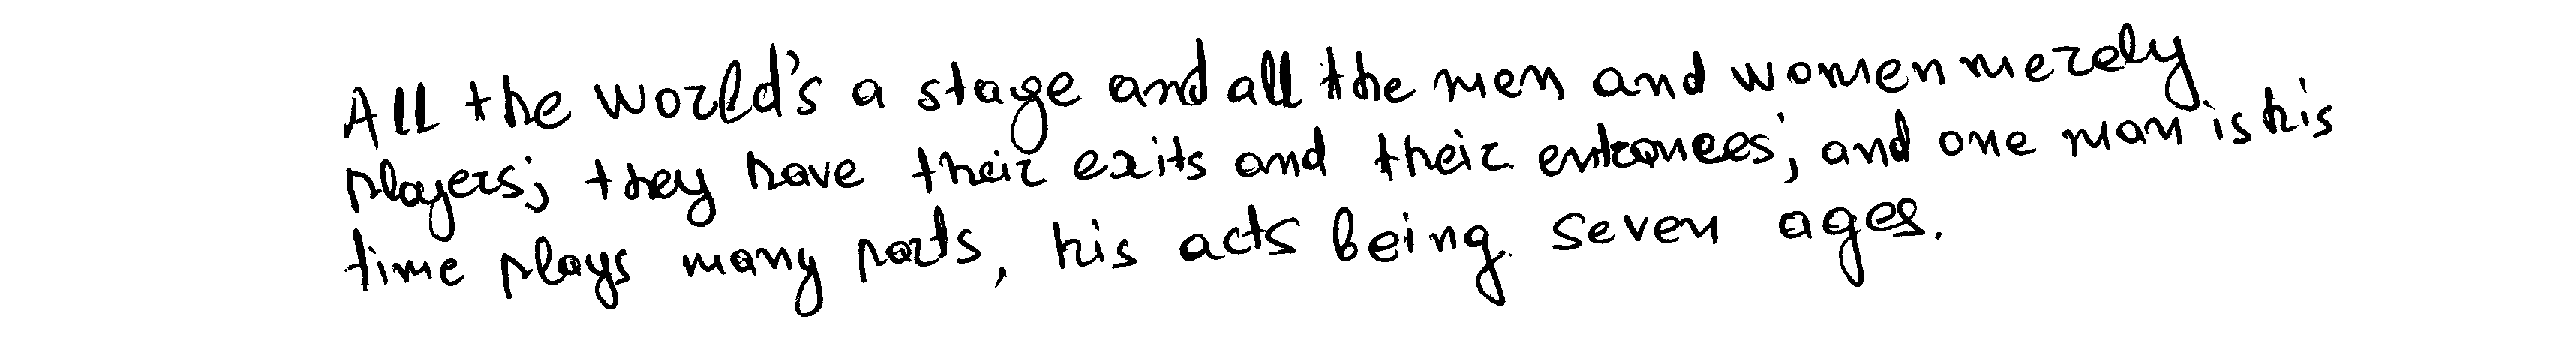 All the world's a stage and all the men and women merely
players; they have their exits and their entrances; and one man is his
time plays many parts, his acts being seven ages.